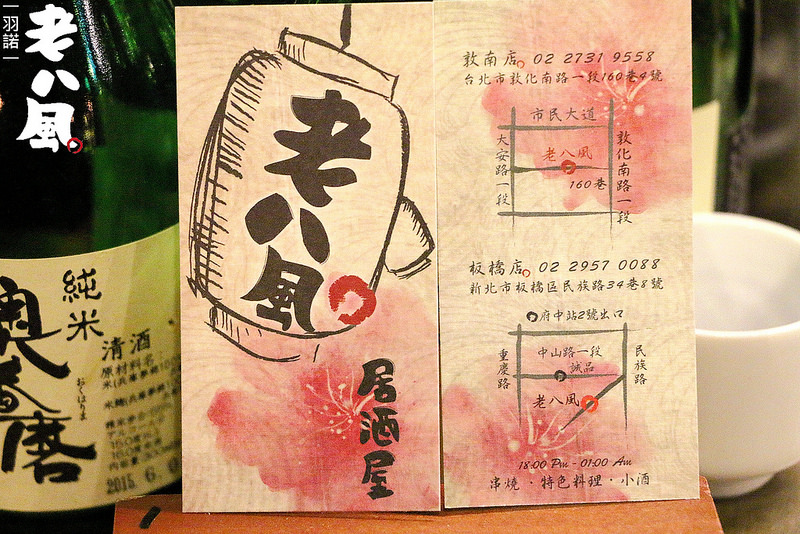 羽諾
老八風
純米
奧播磨
おくはりま
清酒
原材料名:
2015.6.
老八風
居酒屋
敦南店 02 2731 9558
台北市敦化南路一段160巷4號
市民大道
大安路一段
老八風
敦化南路一段
160巷
板橋店 02 2957 0088
新北市板橋區民族路34巷8號
府中站2號出口
重慶路
中山路一段
誠品
民族路
老八風
18:00 Pm - 01:00 Am
串燒·特色料理·小酒